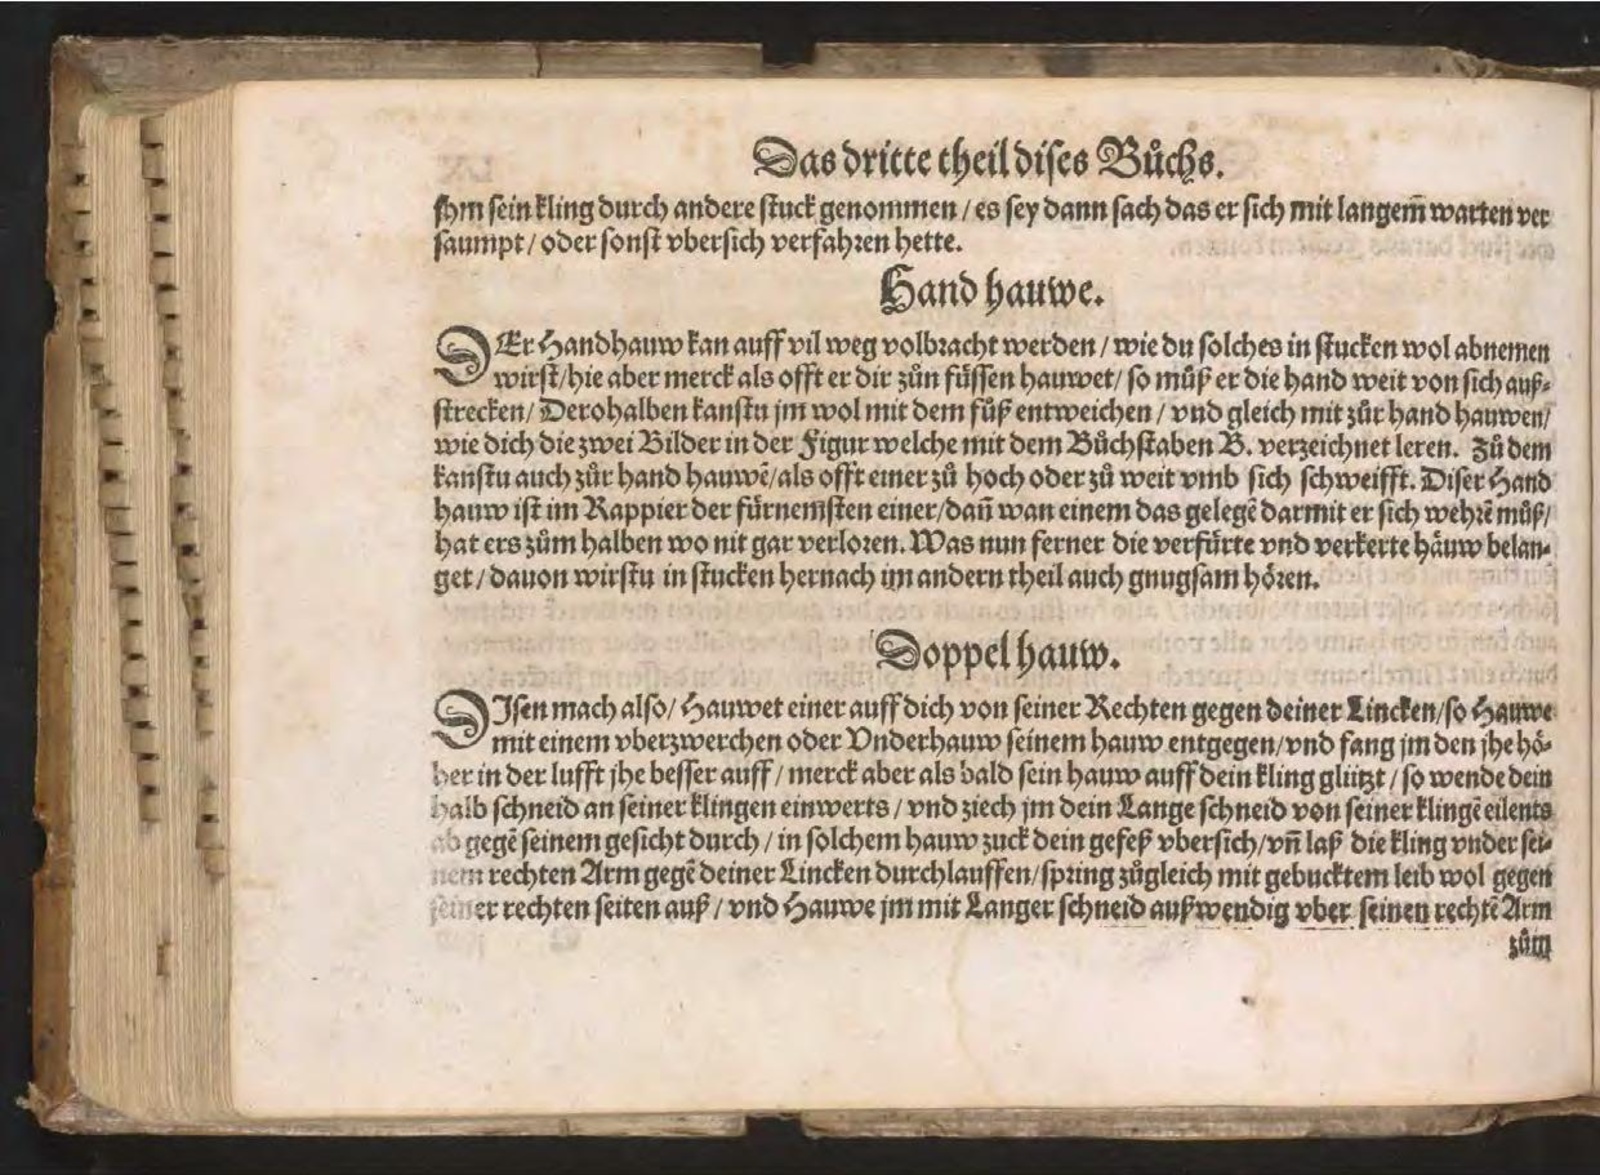 Das dritte theil dises Bůchs.
jhm sein kling durch andere stuck genommen / es sey dann sach das er sich mit langem̃ warten ver
saumpt / oder sonst vbersich verfahren hette.
Hand hauwe.
DEr Handhauw kan auff vil weg volbracht werden / wie du solches in stucken wol abnemen
wirst / hie aber merck als offt er dir zůn füssen hauwet / so můß er die hand weit von sich auß⸗
strecken / Derohalben kanstu jm wol mit dem fůß entweichen / vnd gleich mit zůr hand hauwen /
wie dich die zwei Bilder in der Figur welche mit dem Bůchstaben B. verzeichnet leren. Zů dem
kanstu auch zůr hand hauwē / als offt einer zů hoch oder zů weit vmb sich schweifft. Diser Hand
hauw ist im Rappier der fürnemsten einer / dañ wan einem das gelegē darmit er sich wehrē můß /
hat ers zům halben wo nit gar verloren. Was nun ferner die verfürte vnd verkerte häuw belan⸗
get / dauon wirstu in stucken hernach im andern theil auch gnugsam hören.
Doppel hauw.
DIsen mach also / Hauwet einer auff dich von seiner Rechten gegen deiner Lincken / so Hauwe
mit einem vberzwerchen oder Vnderhauw seinem hauw entgegen / vnd fang jm den jhe hö⸗
her in der lufft jhe besser auff / merck aber als bald sein hauw auff dein kling glützt / so wende dein
halb schneid an seiner klingen einwerts / vnd ziech jm dein Lange schneid von seiner klingē eilents
ab gegē seinem gesicht durch / in solchem hauw zuck dein gefeß vbersich / vñ laß die kling vnder sei⸗
nem rechten Arm gegē deiner Lincken durchlauffen / spring zůgleich mit gebucktem leib wol gegen
seiner rechten seiten auß / vnd Hauwe jm mit Langer schneid außwendig vber seinen rechtē Arm
zům